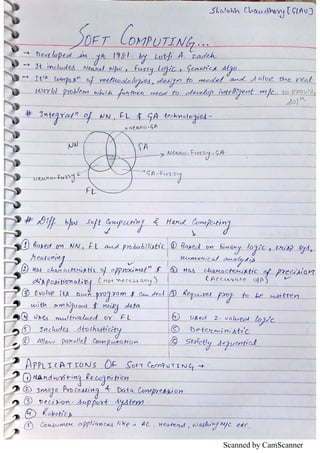 Shalabh Chaudhary [GLAU]
SOFT COMPUTING...
→ Developed in yr 1981 by Lotfi A. Zadeh
→ It includes Neural N/w, Fuzzy Logic, Genetica Algo.
→ It's compos" of methodologies, design to model and solve the real
world problem which further used to develop intelligent m/c. to provide
sol"
# Integrat" of NN, FL & GA technologies -
NEURO-GA
NN
GA
Neuro-Fuzzy-GA
Neuro-Fuzzy
GA-Fuzzy
FL
# Diff b/w Soft Computing & Hard Computing
① Based on NN, FL and probabilistic
reasoning
① Based on binary logic, crisp sys,
numerical analysis
② Has characteristic of approximat" &
dispositionality (Not necessary)
② Has characteristic of precision
(Accurate o/p)
③ Evolve its own program & can deal
with ambiguous & noisy data
③ Requires prog. to be written
④ Uses multivalued or FL
④ Used 2-valued logic
⑤ Includes stochasticity
⑤ Deterministic
⑥ Allow parallel computation
⑥ Strictly sequential
APPLICATIONS OF SOFT COMPUTING →
① Handwriting Recognition
② Image Processing & Data Compression
③ Decision-support system
④ Robotics
⑤ Consumer appliances like → AC, Heaters, Washing M/c etc.
Scanned by CamScanner